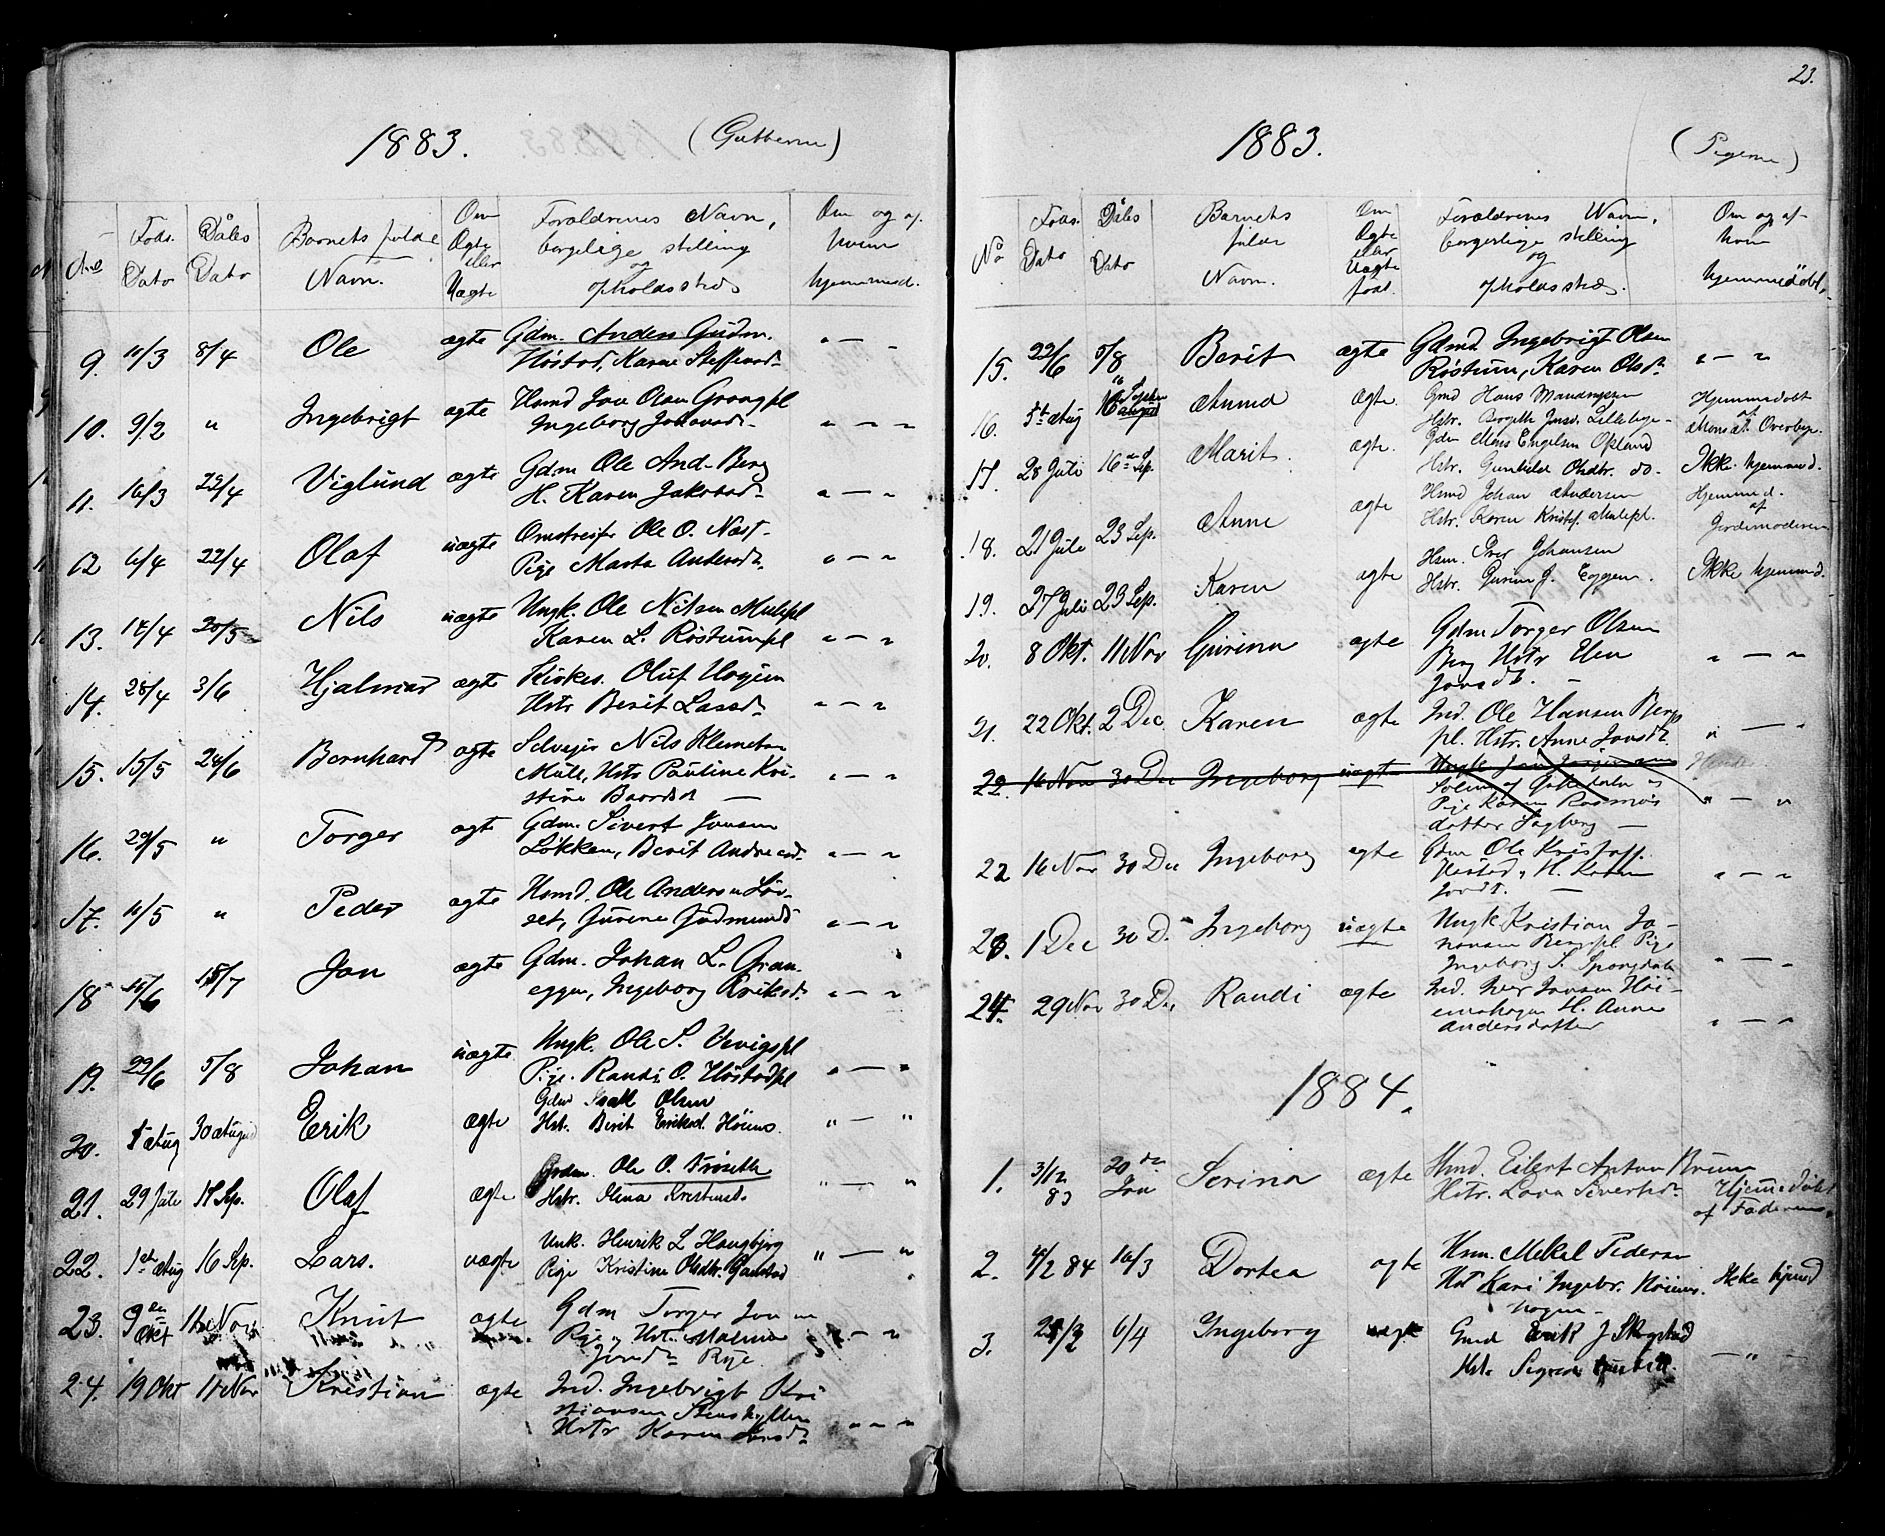 1883. (Gutterne)
No Føds. Dato Dåbs Dato Barnets fulde Navn. Om Ægte eller Uægte Forældrenes Navn, borgelige stilling og opholdssted Om og af hvem hjemmed.
9. 11/3 8/4 Ole ægte Gdm. Anders Gudm.
Høstad, Karne Steffensd. " — "
10. 9/2 " Ingebrigt ægte Hsmd Jon Olsen
Ingeborg " — "
11. 16/3 22/4 Viglund ægte Gdm Ole And. Berg
H. Karen Jakobsd. " — "
12 6/4 22/4 Olaf uægte Omstreifer Ole O. Næst-
Pige Marta Andersd. " — "
13. 17/4 20/5 Nils uægte Ungk. Ole Nilsen Mulepl
Karen L. Røstumpl " — "
14. 28/4 3/6 Hjalmar ægte Kirkes. Oluf
Hstr Berit Larsd. " — "
15. 15/5 24/6 Bernhard ægte Selveier Nils Klemetsen
Mule, Hstr Pauline Kri-
stine Baardsd — " — "
16. 29/5 " Torger ægte Gdm. Sivert Jonsen
Løkken, Berit Andreasd. " — "
17. 11/5 " Peder ægte Hsmd. Ole Andersen Løv-
set, Gurine Gudmunds " — "
18 15/6 15/7 Jon ægte Gdm. Johan L. Gran-
eggen, Ingeborg Eriksd. " — "
19. 22/6 5/8 Johan uægte Ungk. Ole S. Vevigspl
Pige. Randi O. Høstadpl " — "
20. 5 Aug 30 August Erik ægte Gdm Isak Olsen
Hst. Berit Eriksd. " — "
21. 29 Jule 17 Sep. Olaf ægte Gdm. Ole O. Frøseth
Hstr. Olina Kristensd. " — "
22. 1ste Aug 16 Sep. Lars. uægte Unk. Henrik L Haugbjørg
Pige Kristine Olsdtr. " — "
23. 9de Okt 11 Nov Knut ægte Gdm Torger Jonsen
Rye, Hst. Malene
Jonsd Rye. " — "
24. 19 Okt 11 Nov Kristian ægte Ind. Ingebrigt Kri
stiansen
Hstr Karen Jonsd. " — "
23.
1883. (Pigerne)
No Føds. Dato Dåbs Dato Barnets fulde Navn. Om Ægte eller Uægte født. Forældrenes Navn, borgerlige stilling og opholdssted. Om og af hvem hjemmedøbt.
15. 22/6 5/8 Berit ægte Gdmd. Ingebrigt Olsen
Røstum, Karen Olsd. " — "
16. 5te Aug 16 Septbr Anna ægte. Gmd Hans Hjemmedøbt
Hstr. Bergitte Jonsd. af Overbye.
17. 28 Juli 16de Sep. Marit. ægte. Gdm Mons Engelsen Opland
Hstr. Gunhilde Olsdtr. do. Ikke hjemmed.
18. 21 Jule 23 Sep. Anne ægte Hsmd Johan Andersen Hjemmed.
Hstr. Karen Kristof. Mulepl. af Jordemoderen
19. 27 Juli 23 Sep. Karen ægte Hsm. Iver Johansen
Hstr. Gurine J. Eggen. Ikke hjemmed.
20. 8 Okt. 11 Nov Gurina ægte Gdm Torger Olsen
Berg Hstr Elen
Jonsdt. — " — "
21. 22 Okt. 2 Dec Karen ægte Ind. Ole Hansen Bergs
pl. Hstr. Anne Jonsdt. " — "
22. 16 Nov 30 Dec Ingeborg uægte Ungk Jon Jørgensen
Solem af
Pige Karen Rasmus
datter Sagberg — " — "
22 16 Nov 30 Dec Ingeborg ægte Gdm Ole Kristoff.
Høstad, H. Karen
Jonsdt. — " — "
23. 1 Dec 30 D. Ingeborg uægte Ungk Kristian Jo-
hansen Bergspl Pige
Ingeborg S. Spongdal " — "
24. 29 Nov 30 Dec Randi ægte Ind. Iver Jonsen Høi-
emshagen H. Anne
Andersdatter " — "
1884.
1. 3/12 83 20de Jan Serina ægte Hsmd. Eilert Anton
Hstr. Lova Sivertsd. Hjemmedøbt af Faderen
2. 4/2 84 16/3 Dortea ægte Hsm. Mekal Pedersen
Hst Kari Ingebr. Høiems-
hagen — Ikke hjemd
3. 6/4 Ingeborg Gmd Erik J Skogstad
Hst. Sigrid — " —